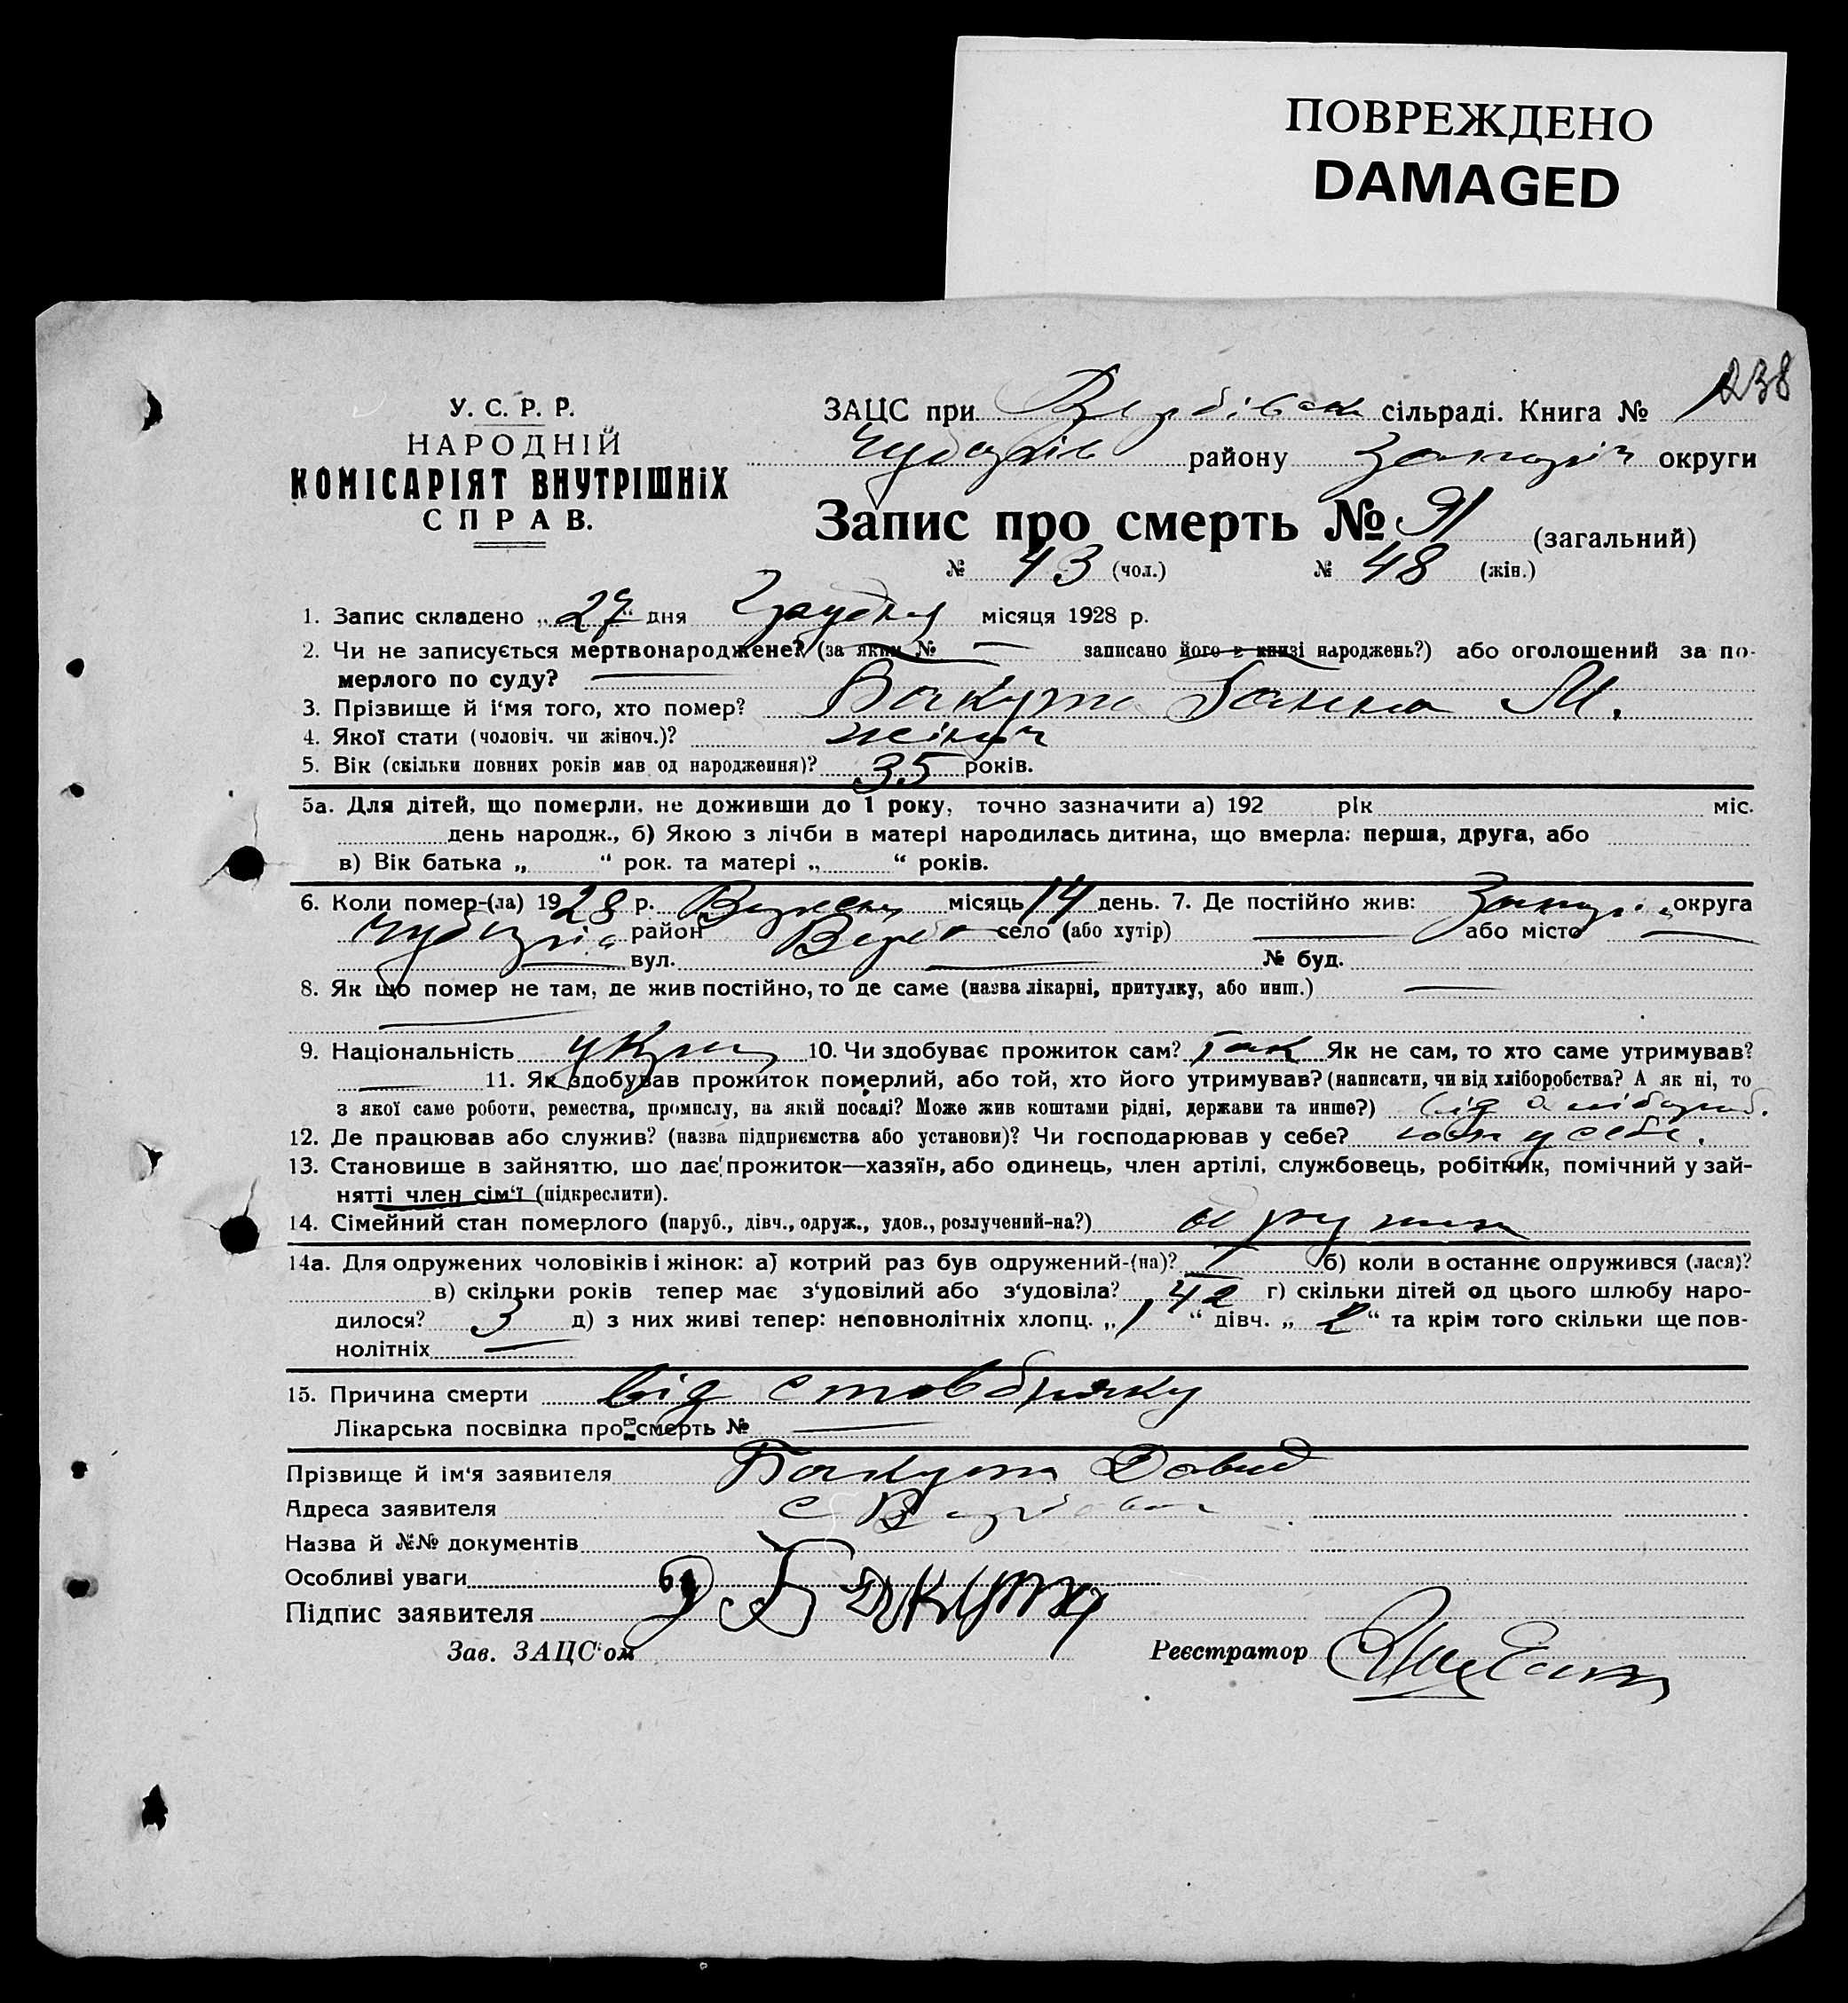 ПОВРЕЖДЕНО
DAMAGED
238
У. С. Р. Р.
НАРОДНІЙ
КОМІСАРІЯТ ВНУТРІШНІХ
СПРАВ.
ЗАЦС при Вербівськ сільраді. Книга № 1
Чубарів району Запоріз округи
Запис про смерть № 91 (загальний)
№ 43 (чол.) № 48 (жін.)
1. Запис складено „27“ дня Грудня місяця 1928 р.
2. Чи не записується мертвонароджене? (за яким № — записано його в книзі народжень?) або оголошений за по-
мерлого по суду? —
3. Прізвище й і'мя того, хто помер? Бакута Ганна М.
4. Якої стати (чоловіч. чи жіноч.)? жіноч
5. Вік (скільки повних років мав од народження)? 35 років.
5а. Для дітей, що померли, не доживши до 1 року, точно зазначити а) 192 рік міс.
день народж., б) Якою з лічби в матері народилась дитина, що вмерла: перша, друга, або
в) Вік батька „ “ рок. та матері „ “ років.
6. Коли помер-(ла) 1928 р. Вересня місяць 14 день. 7. Де постійно жив: округа
район село (або хутір) — або місто —
— вул. — № буд.
8. Як що помер не там, де жив постійно, то де саме (назва лікарні, притулку, або инш.) —
—
9. Національність Укр 10. Чи здобуває прожиток сам? Так Як не сам, то хто саме утримував?
— 11. Як здобував прожиток померлий, або той, хто його утримував? (написати, чи від хліборобства? А як ні, то
з якої саме роботи, ремества, промислу, на якій посаді? Може жив коштами рідні, держави та инше?) від хлібороб.
12. Де працював або служив? (назва підприємства або установи)? Чи господарював у себе? у себе.
13. Становище в зайняттю, що дає прожиток—хазяїн, або одинець, член артілі, службовець, робітник, помічний у зай-
нятті член сім'ї (підкреслити).
14. Сімейний стан померлого (паруб., дівч., одруж., удов., розлучений-на?) одружен
14а. Для одружених чоловіків і жінок: а) котрий раз був одружений-(на)? 1 б) коли в останнє одружився (лася)?
в) скільки років тепер має з'удовілий або з'удовіла? 42 г) скільки дітей од цього шлюбу наро-
дилося? 3 д) з них живі тепер: неповнолітніх хлопц. „1“ дівч. „2“ та крім того скільки ще пов-
нолітніх —
15. Причина смерти від стовбняку
Лікарська посвідка про смерть № —
Прізвище й ім'я заявителя Бакута Давид
Адреса заявителя с
Назва й №№ документів
Особливі уваги
Підпис заявителя Д Бакута
Зав. ЗАЦС'ом Реєстратор